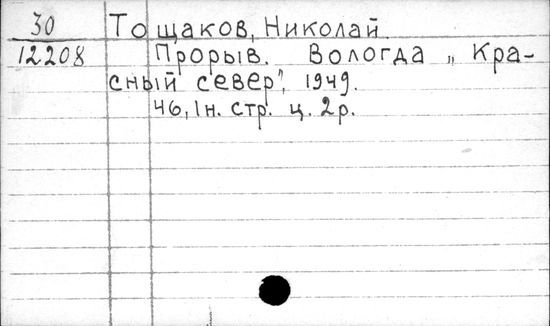 30
12208
Тощаков, Николай
Прорыв. Вологда „Кра-
сный север", 1949.
46, 1н. стр. ц. 2р.